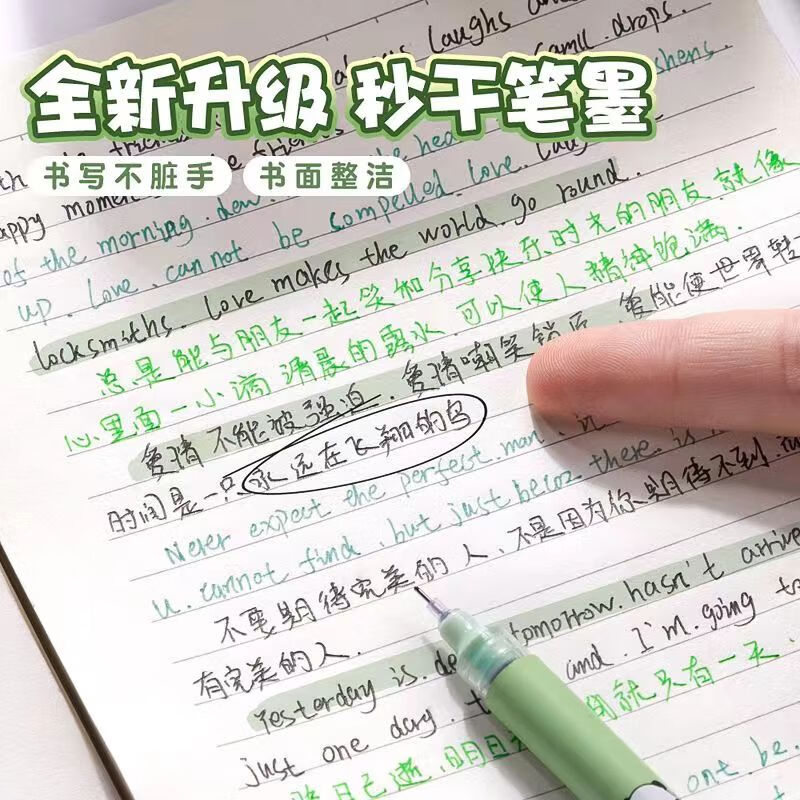 laughs and
全新升级 秒干笔墨
drops.
书写不脏手 书面整洁
happy moment
of the morning. dew
love.
up. Love. cannot be compelled love.
locksmiths. Love makes the world. go round.
总是能与朋友一起笑和分享快乐时光的朋友.就像
心里面一小滴 清晨的露水.可以使人精神饱满.
爱情不能被强迫.爱情嘲笑锁匠.爱能使世界转
时间是一只永远在飞翔的鸟
Never expect the perfect. man.
u. cannot find. but just becoz there. is
不是因为你期待不到.
不要期待完美的人、
有完美的人.
Yesterday is. tomorrow. hasn't arrive
just one day. and. I'm. going to
昨日已逝.明日 就只有一天.
ont. be.